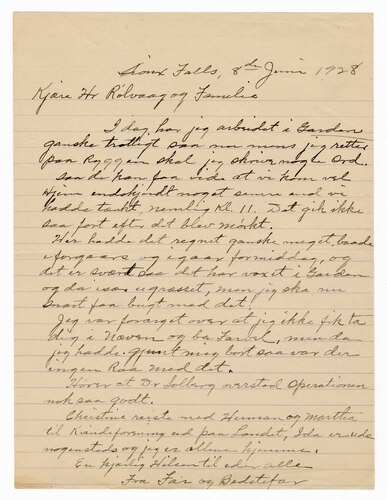 Sioux Falls, 8de Juni 1928
Kjære Hr Rölvaag og Familie
I dag har jeg arbeidet i Garden
ganske trottigt saa nu mens jeg retter
paa Ryggen skal jeg skrive nogle Ord.
saa de kan faa vide at vi kom vel
Hjem endskjøndt noget senere end vi
hadde tænkt, nemlig Kl. 11. Det gik ikke
saa fort efter det blev mörkt.
Her hadde det regnet ganske meget, baade
iforgaars og igaar formiddag, og
det er svært saa det har voxet i Garden
og da især ugræsset, men jeg ska nu
snart faa bugt med det.
Jeg var foræget over at jeg ikke fik ta
dig i Næven og be Farvel, men da
jeg hadde mig bort saa var der
ingen Raa med det.
Hörer at Dr Solberg overstod Operationen
nok saa godt.
Christine reiste med Herman og Martha
til Kvindeforning ud paa Landet, Ida er ude
nogensteds og jeg er allene hjemme.
En hjærtlig Hilsen til eder alle
Fra Far og Bedstefar